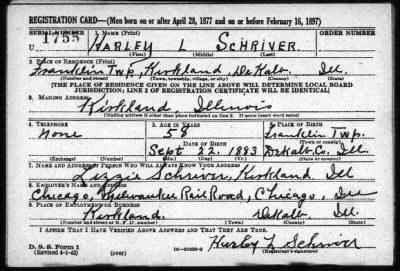 REGISTRATION CARD—(Men born on or after April 28, 1877 and on or before February 16, 1897)
SERIAL NUMBER 1. NAME (Print) ORDER NUMBER
U 1755 HARLEY L SCHRIVER
(First) (Middle) (Last)
2. PLACE OF RESIDENCE (Print)
Franklin Twp, Kirkland, DeKalb, Ill.
(Number and street) (Town, township, village, or city) (County) (State)
[THE PLACE OF RESIDENCE GIVEN ON THE LINE ABOVE WILL DETERMINE LOCAL BOARD
JURISDICTION; LINE 2 OF REGISTRATION CERTIFICATE WILL BE IDENTICAL]
3. MAILING ADDRESS
Kirkland, Illinois
[Mailing address if other than place indicated on line 2. If same insert word same]
4. TELEPHONE 5. AGE IN YEARS 6. PLACE OF BIRTH
None 58 Franklin Twp.
DATE OF BIRTH (Town or county)
Sept 22, 1883 DeKalb Co, Ill.
(Exchange) (Number) (Mo.) (Day) (Yr.) (State or country)
7. NAME AND ADDRESS OF PERSON WHO WILL ALWAYS KNOW YOUR ADDRESS
Lizzie Schriver, Kirkland Ill
8. EMPLOYER'S NAME AND ADDRESS
Chicago, Milwaukee Rail Road, Chicago, Ill
9. PLACE OF EMPLOYMENT OR BUSINESS
Kirkland. DeKalb Ill.
(Number and street or R. F. D. number) (Town) (County) (State)
I AFFIRM THAT I HAVE VERIFIED ABOVE ANSWERS AND THAT THEY ARE TRUE.
D. S. S. Form 1 Harley L Schriver
(Revised 4-1-42) (over) (Registrant's signature)